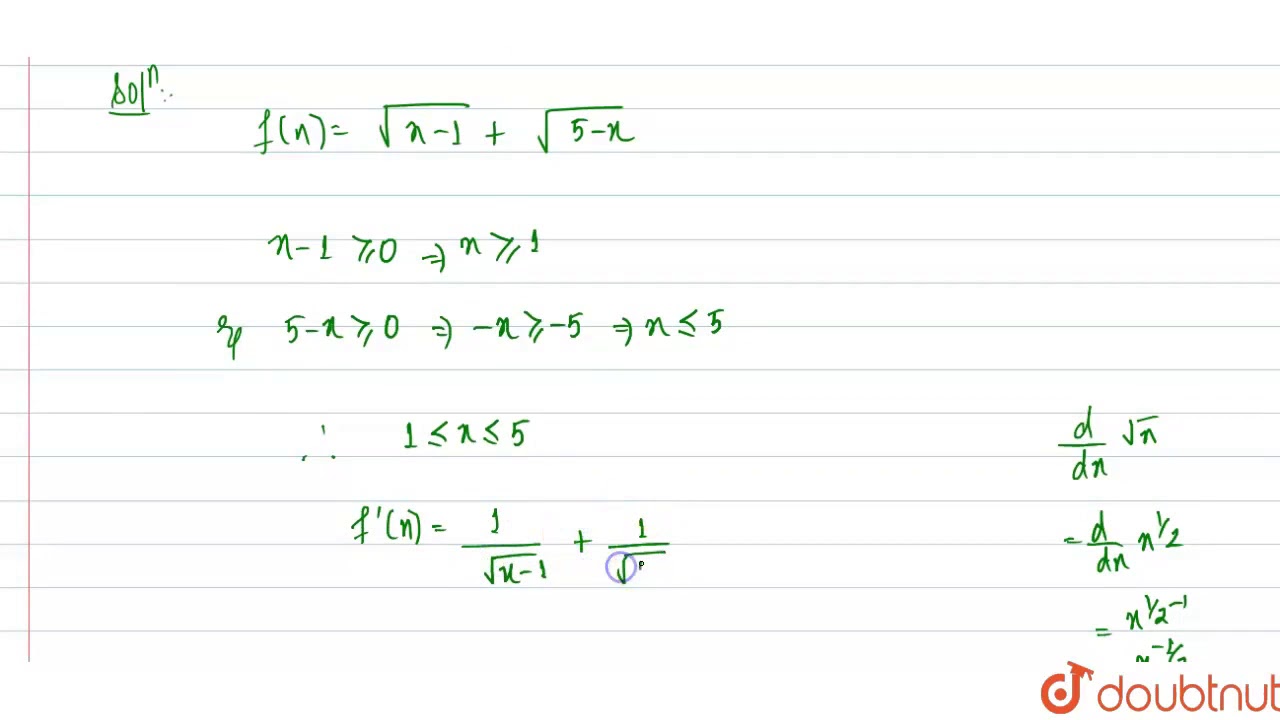 Solⁿ:
f(x) = √(x-1) + √(5-x)
x-1 ⩾ 0 ⇒ x ⩾ 1
& 5-x ⩾ 0 ⇒ -x ⩾ -5 ⇒ x ≤ 5
∴ 1 ≤ x ≤ 5
d/dx √x
f'(x) = 1/√(x-1) + 1/√
= d/dx x^1/2
= x^1/2-1
x^-1/2
doubtnut